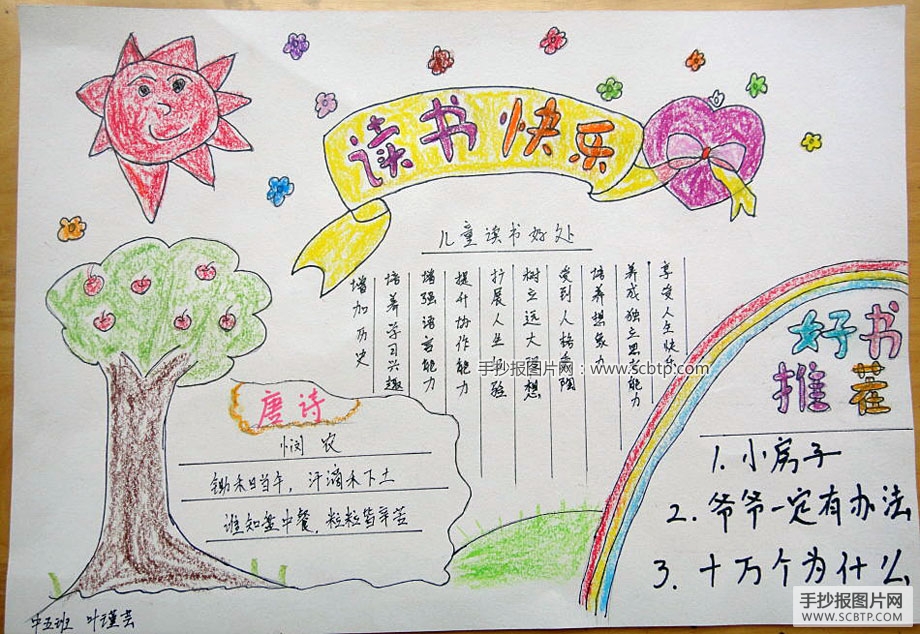 读书快乐
儿童读书好处
享受人生快乐
养成独立思考能力
培养想象力
受到人格熏陶
树立远大理想
扩展人生体验
提升协作能力
增强语言能力
培养学习兴趣
增加历史
手抄报图片网：www.scbtp.com
唐诗
悯农
锄禾日当午，汗滴禾下土
谁知盘中餐，粒粒皆辛苦
好书
推荐
1. 小房子
2. 爷爷一定有办法
3. 十万个为什么
中五班 叶瑾芸
手抄报图片网
WWW.SCBTP.COM